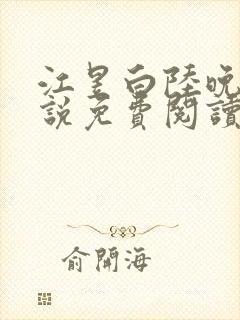 江昱白陸晚
說免費閱讀
俞開海